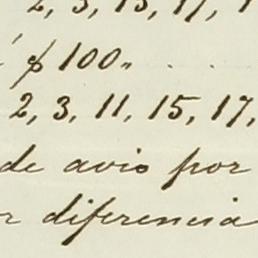 2, 3, 15, 17, 1
$ 100,,
2, 3, 11, 15, 17,
de avio por
r diferencia